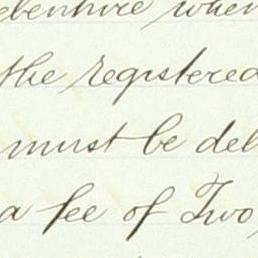 ebenture when
the registered
must be del
a fee of Two